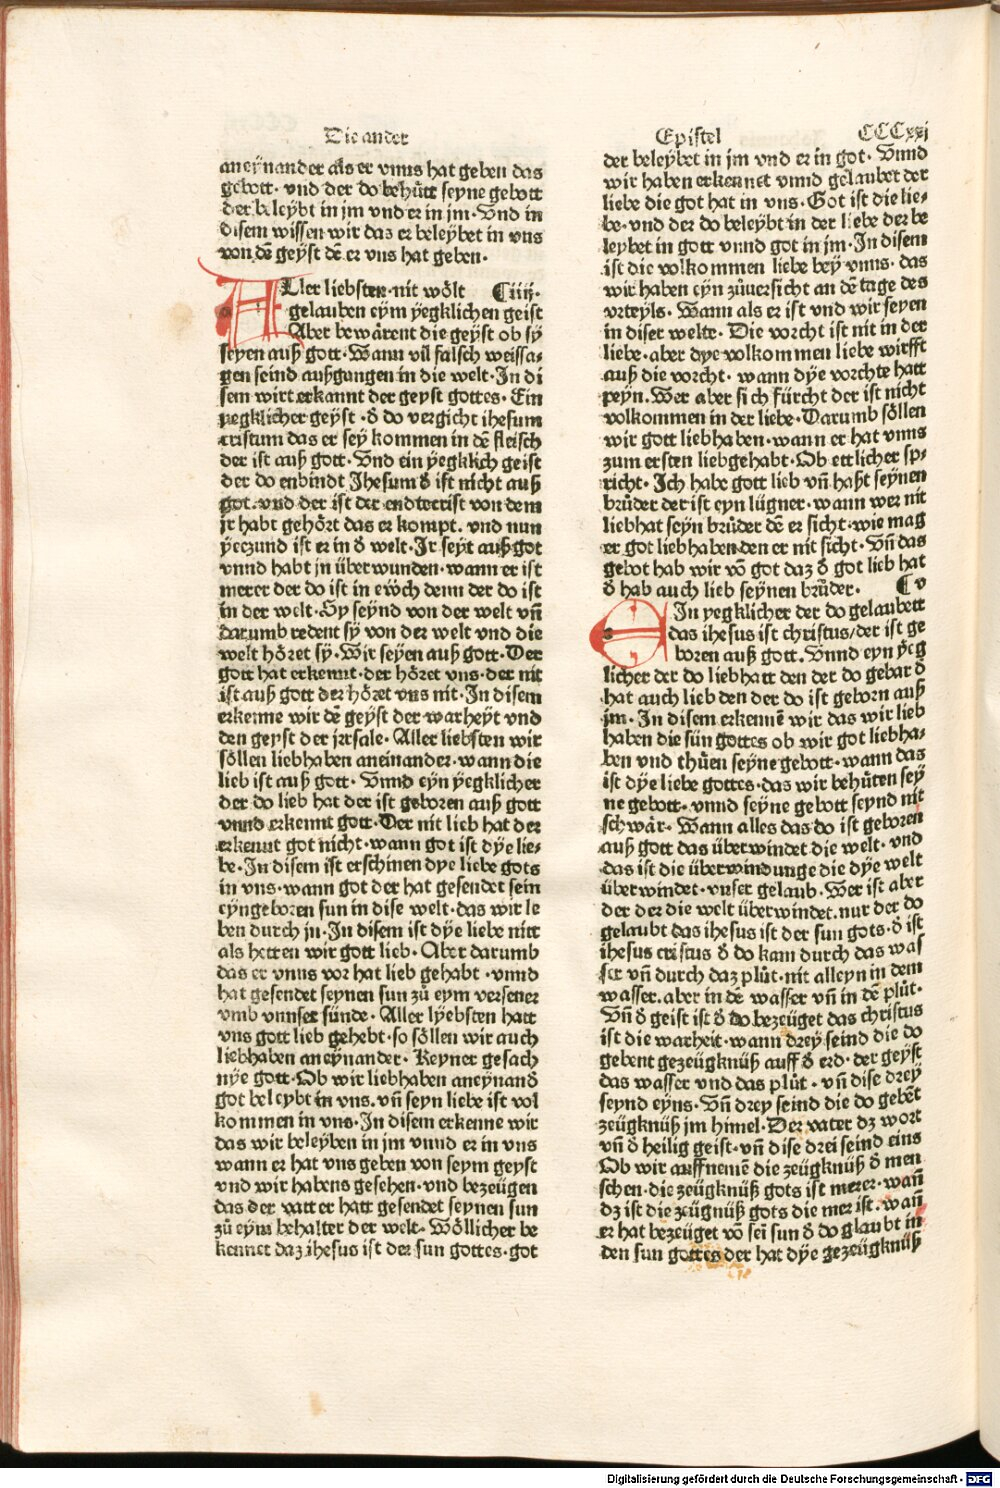 Die ander
aneynander als er vnns hat geben das
gebott· vnd der do behůtt seyne gebott
der beleybt in jm vnd er in jm· Vnd in
disem wissen wir das er beleybet in vns
von dē geyst dē er vns hat geben·
ALler liebsten·nit wölt ¶iiij·
gelauben eym ÿegklichen geist
Aber bewärent die geyst ob sÿ
seyen auß gott·Wann vil falsch weissa⸗
gen seind außgangen in die welt·In di
sem wirt erkannt der geyst gottes· Ein
yegklicher geyst· ð do vergicht ihesum
cristum das er sey kommen in dē fleisch
der ist auß gott· Vnd ein ÿegklich geist
der do enbindt Jhesum ð ist nicht auß
got·vnd der ist der endtecrist von dem
jr habt gehört das er kompt· vnd nun
ÿeczund ist er in ð welt· Jr seyt auß got
vnnd habt jn überwunden·wann er ist
merer der do ist in ewch denn der do ist
in der welt· Sy seynd von der welt vñ
darumb redent sÿ von der welt vnd die
welt höret sÿ·Wir seyen auß gott·Der
gott hat erkennt·der höret vns·der nit
ist auß gott der höret vns nit·In disem
erkenne wir dē geÿst der warheyt vnd
den geyst der jrrsale· Aller liebsten wir
söllen liebhaben aneinander·wann die
lieb ist auß gott· Vnnd eyn ÿegklicher
der do lieb hat der ist geboren auß gott
vnnd erkennt gott·Der nit lieb hat der
erkennt got nicht·wann got ist dÿe lie⸗
be·In disem ist erschinen dye liebe gots
in vns·wann got der hat gesendet sein
eyngeboren sun in dise welt·das wir le
ben durch jn·In disem ist dÿe liebe nitt
als hetten wir gott lieb· Aber darumb
das er vnns vor hat lieb gehabt ·vnnd
hat gesendet seynen sun zů eym versener
vmb vnnser sünde· Aller lÿebsten hatt
vns gott lieb gehebt·so söllen wir auch
liebhaben aneÿnander· Keyner gesach
nÿe gott·Ob wir liebhaben aneÿnanð
got beleybt in vns·vñ seyn liebe ist vol
kommen in vns·In disem erkenne wir
das wir beleyben in jm vnnd er in vns
wann er hat vns geben von seym geyst
vnd wir habens gesehen·vnd bezeügen
das der vatter hatt gesendet seynen sun
zů eym behalter der welt· Wöllicher be
kennet daz ihesus ist der sun gottes·got
Epistel CCCxxj
der beleybet in jm vnd er in got· Vnnd
wir haben erkennet vnnd gelaubet der
liebe die got hat in vns·Got ist die lie⸗
be·vnd der do beleÿbt in der liebe der be
leybet in gott vnnd got in jm·In disem
ist die volkommen liebe bey vnns·das
wir haben eyn zůuersicht an dē tage des
vrteyls·Wann als er ist vnd wir seyen
in diser welte· Die vorcht ist nit in der
liebe·aber dye volkommen liebe wirfft
auß die vorcht· wann dÿe vorchte hatt
peyn·Wer aber sich fürcht der ist nicht
volkommen in der liebe·Darumb söllen
wir gott liebhaben·wann er hat vnns
zum ersten liebgehabt·Ob ettlicher sp⸗
richt·Ich habe gott lieb vñ haßt seynen
brůder der ist eyn lügner·wann wer nit
liebhat seyn brůder dē er sicht·wie mag
er got liebhaben den er nit sicht·Vñ das
gebot hab wir vō got daz ð got lieb hat
ð hab auch lieb seynen brůder· ¶v
EIn yegklicher der do gelaubett
das ihesus ist christus/der ist ge
boren auß gott·Vnnd eyn ÿeg
licher der do liebhatt den der do gebar ð
hat auch lieb den der do ist geborn auß
jm·In disem erkennē wir das wir lieb
haben die sün gottes ob wir got liebha⸗
ben vnd thůen seyne gebott·wann das
ist dÿe liebe gottes·das wir behůten sey
ne gebott· vnnd seÿne gebott seynd nit
schwär· Wann alles das do ist geboren
auß gott das überwindet die welt·vnd
das ist die überwindunge die dÿe welt
überwindet·vnser gelaub·Wer ist aber
der der die welt überwindet·nur der do
gelaubt das ihesus ist der sun gots·ð ist
ihesus cristus ð do kam durch das was
ser vñ durch daz plůt·nit alleyn in dem
wasser·aber in dē wasser vñ in dē plůt·
Vñ ð geist ist ð do bezeüget das christus
ist die warheit·wann drey seind die do
gebent gezeügknüß auff ð erd·der geyst
das wasser vnd das plůt·vñ dise drey
seynd eyns·Vñ drey seind die do gebēt
zeügknüß jm himel·Der vater dz wort
vñ ð heilig geist·vñ dise drei seind eins
Ob wir auffnemē die zeügknüß ð men
schen·die zeügknüß gots ist merer·wañ
dz ist die zeügnüß gots die mer ist·wañ
er hat bezeüget vō sei sun ð do glaubt in
den sun gottes der hat dÿe gezeügknüß
Digitalisierung gefördert durch die Deutsche Forschungsgemeinschaft - DFG